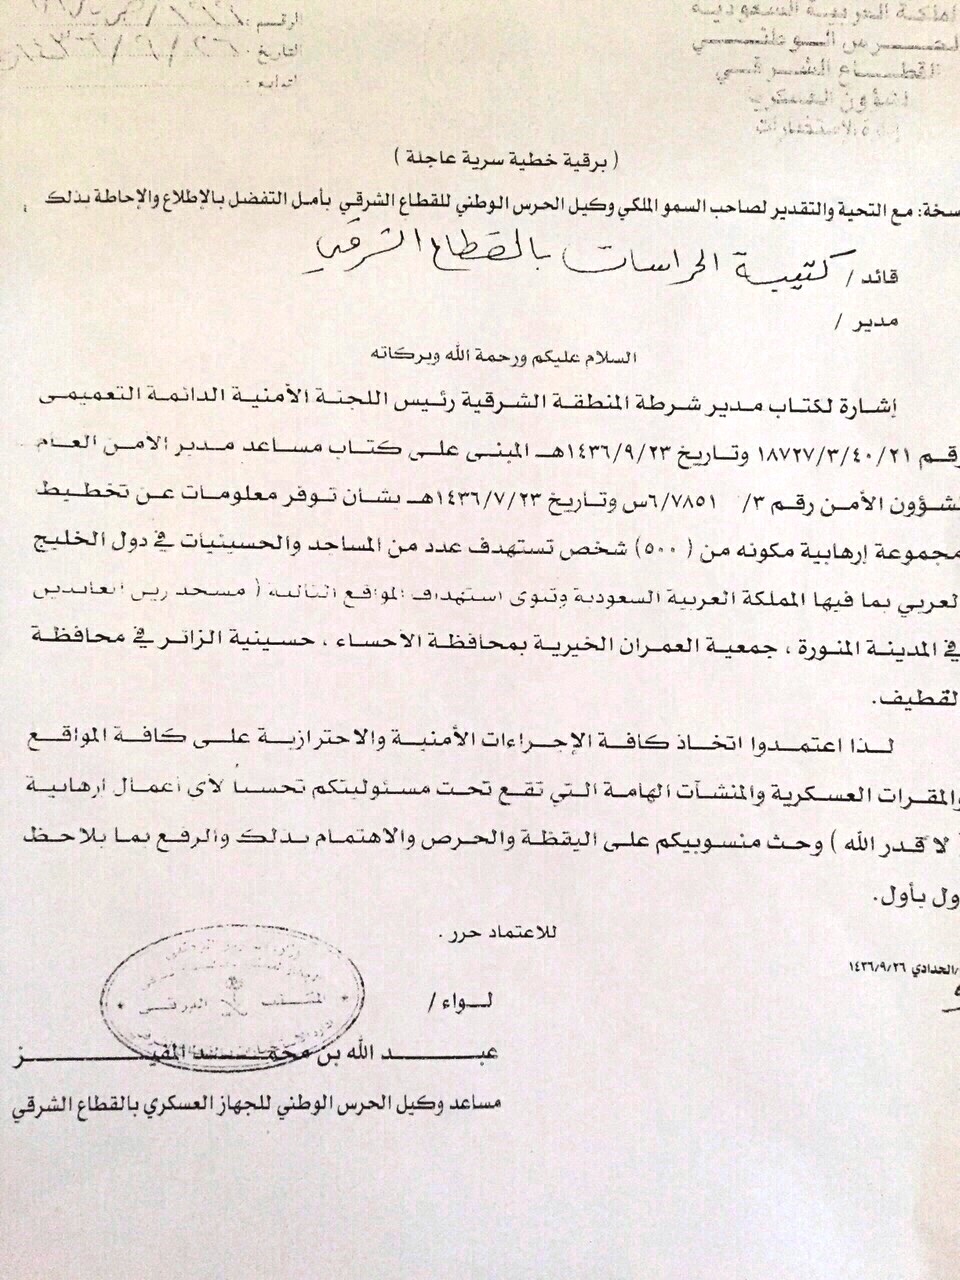 المملكة العربية السعودية
الحرس الوطني
القطاع الشرقي
الشؤون العسكرية
إدارة الاستخبارات
الرقم :
التاريخ :
التوابع :
( برقية خطية سرية عاجلة )
سخة: مع التحية والتقدير لصاحب السمو الملكي وكيل الحرس الوطني للقطاع الشرقي بأمل التفضل بالإطلاع والإحاطة بذلك
قائد / كتيبة الحراسات بالقطاع الشرقي
مدير /
السلام عليكم ورحمة الله وبركاته
إشارة لكتاب مدير شرطة المنطقة الشرقية رئيس اللجنة الأمنية الدائمة التعميمي
رقم ١٨٧٢٧/٣/٤٠/٢١ وتاريخ ١٤٣٦/٩/٢٣هـ المبني على كتاب مساعد مدير الأمن العام
لشؤون الأمن رقم ٣/ ٦/٧٨٥١س وتاريخ ١٤٣٦/٧/٢٣هـ بشأن توفر معلومات عن تخطيط
مجموعة إرهابية مكونه من ( ٥٠٠) شخص تستهدف عدد من المساجد والحسينيات في دول الخليج
العربي بما فيها المملكة العربية السعودية وتنوى استهداف المواقع التالية ( مسجد زين العابدين
في المدينة المنورة ، جمعية العمران الخيرية بمحافظة الأحساء ، حسينية الزائر في محافظة
القطيف.
لذا اعتمدوا اتخاذ كافة الإجراءات الأمنية والاحترازية على كافة المواقع
والمقرات العسكرية والمنشآت الهامة التي تقع تحت مسئوليتكم تحسباً لأي أعمال ارهابية
( لا قدر الله ) وحث منسوبيكم على اليقظة والحرص والاهتمام بذلك والرفع بما يلاحظ
أول بأول.
للاعتماد حرر .
/الحدادي ١٤٣٦/٩/٢٦
لواء /
عبد الله بن محمد المفيز
مساعد وكيل الحرس الوطني للجهاز العسكري بالقطاع الشرقي